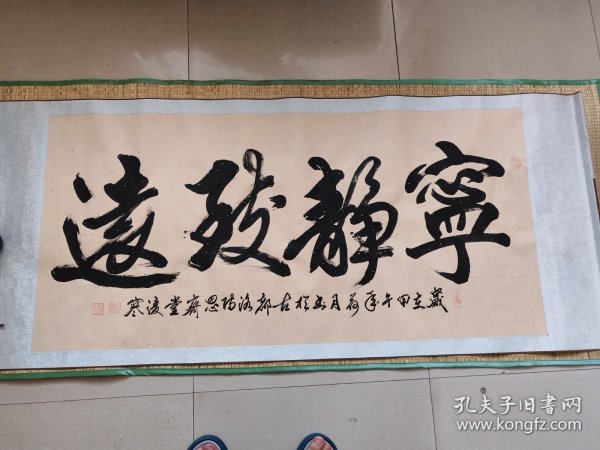 寧靜致遠
歲在甲午年荷月書於古都洛陽思齊堂凌寒
孔夫子旧书网
www.kongfz.com